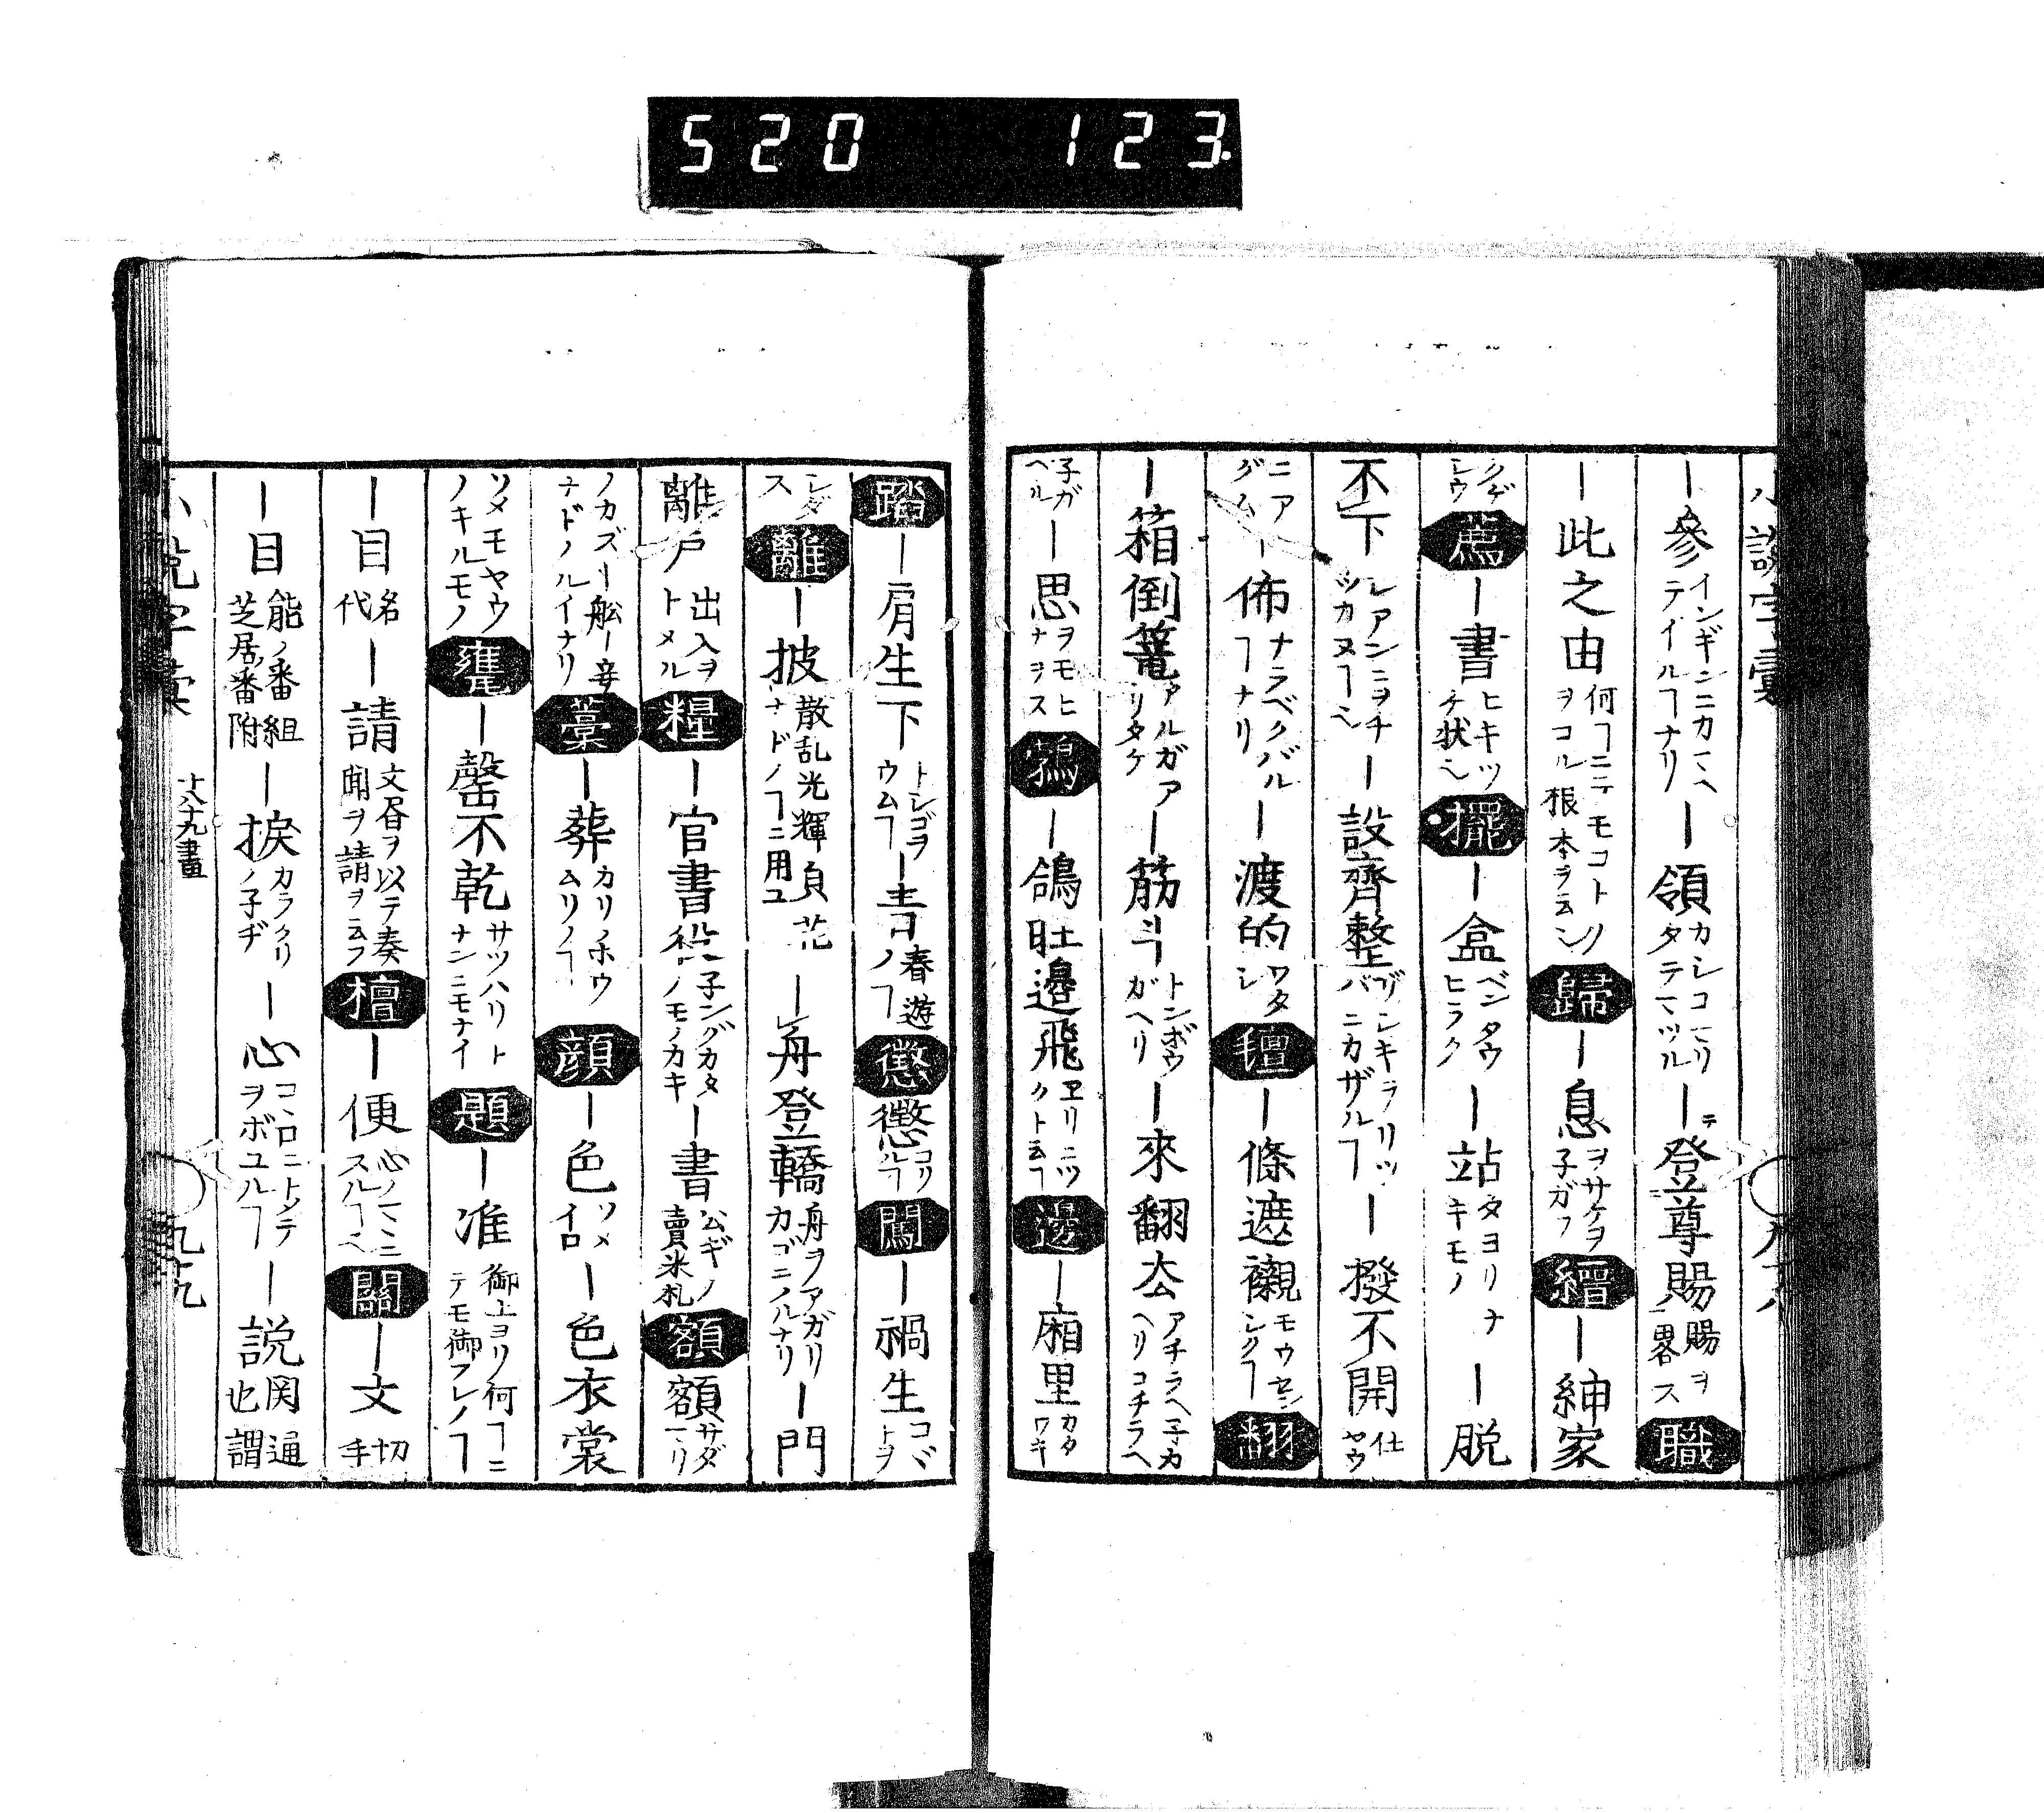 520 123.
ー參インギンニカマヘテイルヿナリー領カシコマリタテマツルー登尊賜賜ヲ畧ス職
ー此之由何ヿニテモコトノヲコル根本ヲ云歸ー息ヲサケヲ子ガフ縉ー紳家
クゲレウ薦ー書ヒキツケ状擺ー盒ベンタウヒラクー站タヨリナキモノー脱
不下レアンニヲチツカヌヿー設齊整バニカザルヿー撥不開仕ヤウ
ニアグムー佈ナラベクバルヿナリー渡的ワタシ氊ー條遮襯モウセンシクヿ翻
ー箱倒篭アルガアリタケー筋斗トンボウガヘリー來翻去アチラヘ子カヘリコチラヘ
子ガヘルー思ヲモヒナヲス鵓ー鴿旺邉飛ヱリニツクト云ヿ邊ー廂里カタワキ
踏ー肩生下トシゴヲウムヿー青春遊ノヿ懲懲コリルヿ闖ー禍生コトヲ
シダス離ー披散乱光輝負花ナドノヿニ用ユー舟登轎舟ヲアガリカゴニノルナリー門
離戸出入ヲトメル糧ー官書役子ングカタノモノカキー書公ギノ賣米札額額サダマリ
ノカズー舩ー妾ナドノルイナリ藁ー葬カリノホウムリノヿ顔ー色ソメイロー色衣裳
ソメモヤウノキルモノ甕ー罄不乾サツハリトナンニモナイ題ー准御上ヨリ何ヿニテモ御フレノヿ
ー目名代ー請文書ヲ以テ奏聞ヲ請ヲ云フ檀ー便心ノマヽニスルヿ關ー文切手
ー目能ノ番組芝居番附ー捩カラクリノ子ヂー心コヽロニトメテヲボユルヿー説関通也謂
十八十九畫 九十九